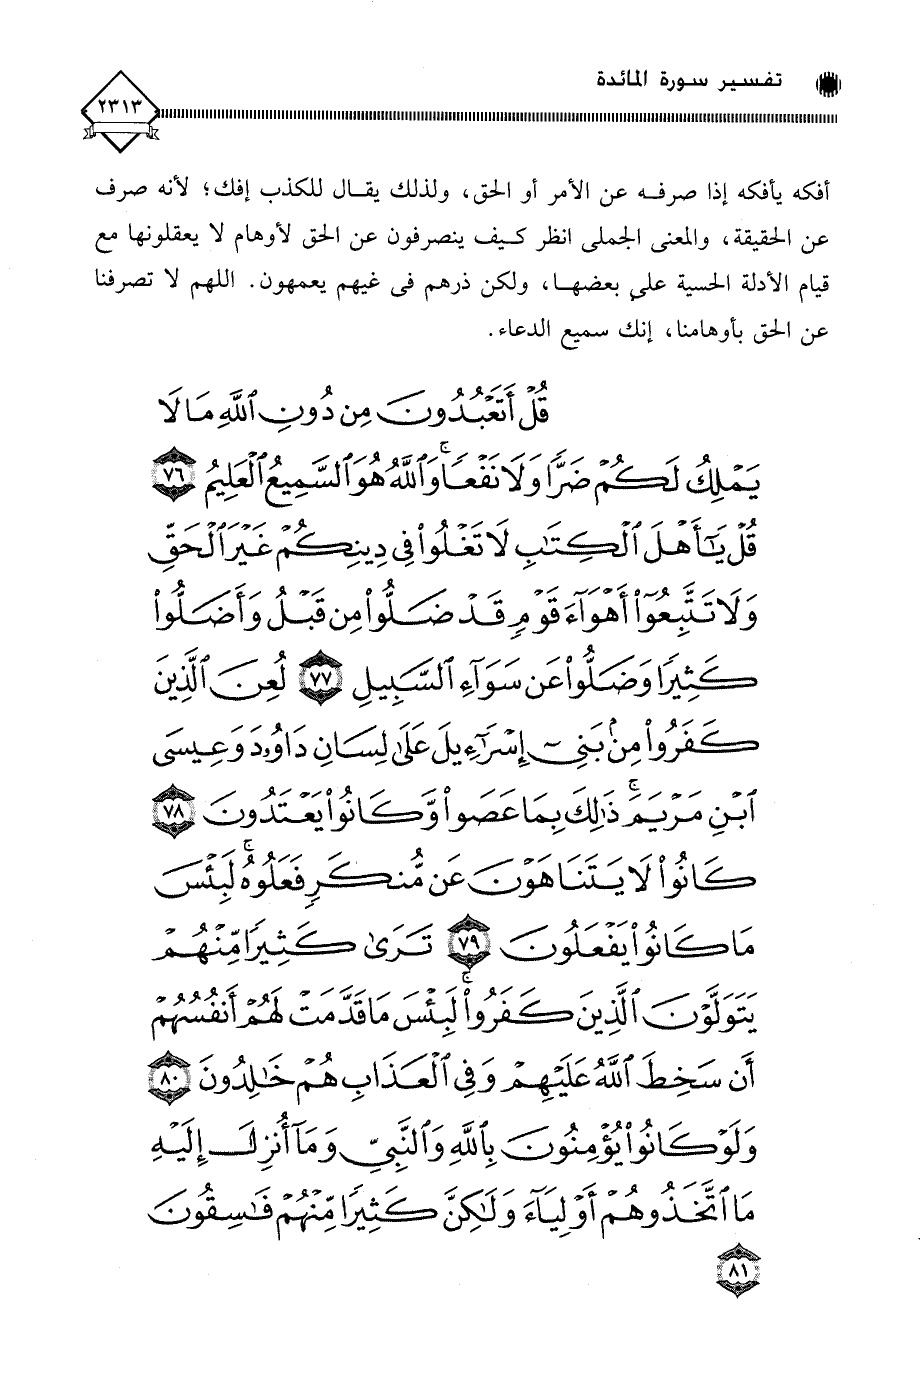 تفسير سورة المائدة
٢٣١٣
أفكه يأفكه إذا صرفه عن الأمر أو الحق، ولذلك يقال للكذب إفك؛ لأنه صرف
عن الحقيقة، والمعنى الجملى انظر كيف ينصرفون عن الحق لأوهام لا يعقلونها مع
قيام الأدلة الحسية على بعضها، ولكن ذرهم فى غيهم يعمهون. اللهم لا تصرفنا
عن الحق بأوهامنا، إنك سميع الدعاء.
قُلْ أَتَعْبُدُونَ مِن دُونِ ٱللَّهِ مَا لَا
يَمْلِكُ لَكُمْ ضَرًّا وَلَا نَفْعًا ۚ وَٱللَّهُ هُوَ ٱلسَّمِيعُ ٱلْعَلِيمُ ٧٦
قُلْ يَٰٓأَهْلَ ٱلْكِتَٰبِ لَا تَغْلُوا۟ فِى دِينِكُمْ غَيْرَ ٱلْحَقِّ
وَلَا تَتَّبِعُوٓا۟ أَهْوَآءَ قَوْمٍ قَدْ ضَلُّوا۟ مِن قَبْلُ وَأَضَلُّوا۟
كَثِيرًا وَضَلُّوا۟ عَن سَوَآءِ ٱلسَّبِيلِ ٧٧ لُعِنَ ٱلَّذِينَ
كَفَرُوا۟ مِنۢ بَنِىٓ إِسْرَٰٓءِيلَ عَلَىٰ لِسَانِ دَاوُۥدَ وَعِيسَى
ٱبْنِ مَرْيَمَ ۚ ذَٰلِكَ بِمَا عَصَوا۟ وَّكَانُوا۟ يَعْتَدُونَ ٧٨
كَانُوا۟ لَا يَتَنَاهَوْنَ عَن مُّنكَرٍ فَعَلُوهُ ۚ لَبِئْسَ
مَا كَانُوا۟ يَفْعَلُونَ ٧٩ تَرَىٰ كَثِيرًا مِّنْهُمْ
يَتَوَلَّوْنَ ٱلَّذِينَ كَفَرُوا۟ ۚ لَبِئْسَ مَا قَدَّمَتْ لَهُمْ أَنفُسُهُمْ
أَن سَخِطَ ٱللَّهُ عَلَيْهِمْ وَفِى ٱلْعَذَابِ هُمْ خَٰلِدُونَ ٨٠
وَلَوْ كَانُوا۟ يُؤْمِنُونَ بِٱللَّهِ وَٱلنَّبِىِّ وَمَآ أُنزِلَ إِلَيْهِ
مَا ٱتَّخَذُوهُمْ أَوْلِيَآءَ وَلَٰكِنَّ كَثِيرًا مِّنْهُمْ فَٰسِقُونَ
٨١